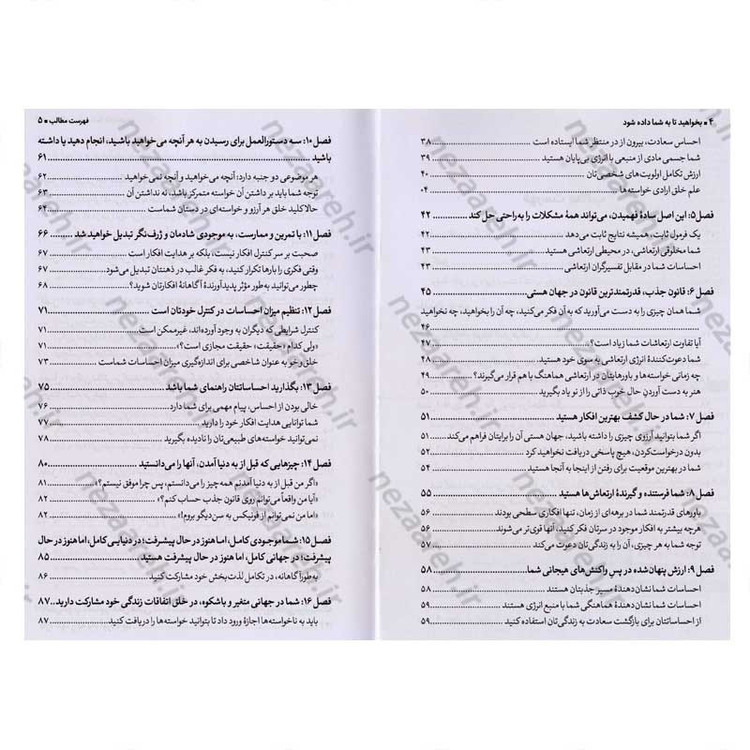 ۴ ■ بخواهید تا به شما داده شود
احساس سعادت، بیرون از در منتظر شما ایستاده است ۳۸
شما جسمی مادی از منبعی با انرژی بی‌پایان هستید ۳۹
ارزش تکامل اولویت‌های شخصی‌تان ۴۰
علم خلق ارادی خواسته‌ها ۰۴
فصل ۵: این اصل سادهٔ فهمیدن، می‌تواند همهٔ مشکلات را به‌راحتی حل کند ۴۲
یک فرمول ثابت، همیشه نتایج ثابت می‌دهد ۴۲
شما مخلوقی ارتعاشی، در محیطی ارتعاشی هستید ۴۳
احساسات شما در مقابل تفسیرگران ارتعاشی ۴۳
فصل ۶: قانون جذب، قدرتمندترین قانون در جهان هستی ۴۵
شما همان چیزی را به دست می‌آورید که به آن فکر می‌کنید، چه آن را بخواهید، چه نخواهید
۴۶
آیا تفاوت ارتعاشات شما زیاد است؟ ۴۷
شما دعوت‌کنندهٔ انرژی ارتعاشی به سوی خود هستید ۴۸
چه زمانی خواسته‌ها و باورهایتان در ارتعاشی هماهنگ با هم قرار می‌گیرند؟ ۴۹
هنر به دست آوردن حال خوب ذاتی را از نو یاد بگیرید ۵۰
فصل ۷: شما در حال کشف بهترین افکار هستید ۵۱
اگر شما بتوانید آرزوی چیزی را داشته باشید، جهان هستی آن را برایتان فراهم می‌کند ۵۱
بدون درخواست‌کردن، هیچ پاسخی دریافت نخواهید کرد ۵۲
شما در بهترین موقعیت برای رفتن از اینجا به آنجا هستید ۵۴
فصل ۸: شما فرستنده و گیرندهٔ ارتعاش‌ها هستید ۵۵
باورهای قدرتمند شما در برهه‌ای از زمان، تنها افکاری سطحی بودند ۵۶
هرچه بیشتر به افکار موجود در سرتان فکر کنید، آنها قوی‌تر می‌شوند ۵۶
توجه شما به هر چیزی، آن را به زندگی‌تان دعوت می‌کند ۵۷
فصل ۹: ارزش پنهان‌شده در پسِ واکنش‌های هیجانی شما ۵۸
احساسات شما نشان‌دهندهٔ مسیر جذبتان هستند ۵۸
احساسات شما نشان‌دهندهٔ هماهنگی شما با منبع انرژی هستند ۵۹
از احساساتتان برای بازگشت سعادت به زندگی‌تان استفاده کنید ۵۹
فهرست مطالب ■ ۵
فصل ۱۰: سه دستورالعمل برای رسیدن به هر آنچه می‌خواهید باشید، انجام دهید یا داشته
باشید ۶۱
هر موضوعی دو جنبه دارد: آنچه می‌خواهید و آنچه نمی‌خواهید ۶۲
توجه شما باید بر داشتن آن خواسته متمرکز باشد، نه نداشتن آن ۶۳
حالا کلید خلق هر آرزو و خواسته‌ای در دستان شماست ۶۴
فصل ۱۱: با تمرین و ممارست، به موجودی شادمان و ژرف‌نگر تبدیل خواهید شد ۶۶
صحبت بر سر کنترل افکار نیست، بلکه بر هدایت افکار است ۶۷
وقتی فکری را بارها تکرار کنید، به فکر غالب در ذهنتان تبدیل می‌شود ۶۷
چطور می‌توانید به‌طور مؤثر پدیدآورندهٔ آگاهانهٔ افکارتان شوید؟ ۶۸
فصل ۱۲: تنظیم میزان احساسات در کنترل خودتان است ۷۱
کنترل شرایطی که دیگران به وجود آورده‌اند، غیرممکن است ۷۱
«ولی کدام «حقیقت»، حقیقت مجازی است؟» ۷۱
خلق‌وخو به عنوان شاخصی برای اندازه‌گیری میزان احساسات شماست ۷۳
فصل ۱۳: بگذارید احساساتتان راهنمای شما باشد ۷۵
خالی بودن از احساس، پیام مهمی برای شما دارد ۷۶
شما توانایی هدایت افکار خود را دارید ۷۷
نمی‌توانید خواسته‌های طبیعی‌تان را نادیده بگیرید ۷۸
فصل ۱۴: چیزهایی که قبل از به دنیا آمدن، آنها را می‌دانستید ۸۰
«اگر من قبل از به دنیا آمدنم همه‌چیز را می‌دانستم، پس چرا موفق نیستم؟» ۸۱
«آیا من واقعاً می‌توانم روی قانون جذب حساب کنم؟» ۸۲
«اما من نمی‌توانم از فونیکس به سن‌دیگو بروم!» ۸۲
فصل ۱۵: شما موجودی کامل، اما هنوز در حال پیشرفت؛ در دنیایی کامل، اما هنوز در حال
پیشرفت؛ در جهانی کامل، اما هنوز در حال پیشرفت هستید ۸۵
به‌طور آگاهانه، در تکامل لذت‌بخش خود مشارکت کنید ۸۶
فصل ۱۶: شما در جهانی متغیر و باشکوه، در خلق اتفاقات زندگی خود مشارکت دارید ۸۷
باید به ناخواسته‌ها اجازهٔ ورود داد تا بتوانید خواسته‌ها را دریافت کنید ۸۷
nezaareh.ir